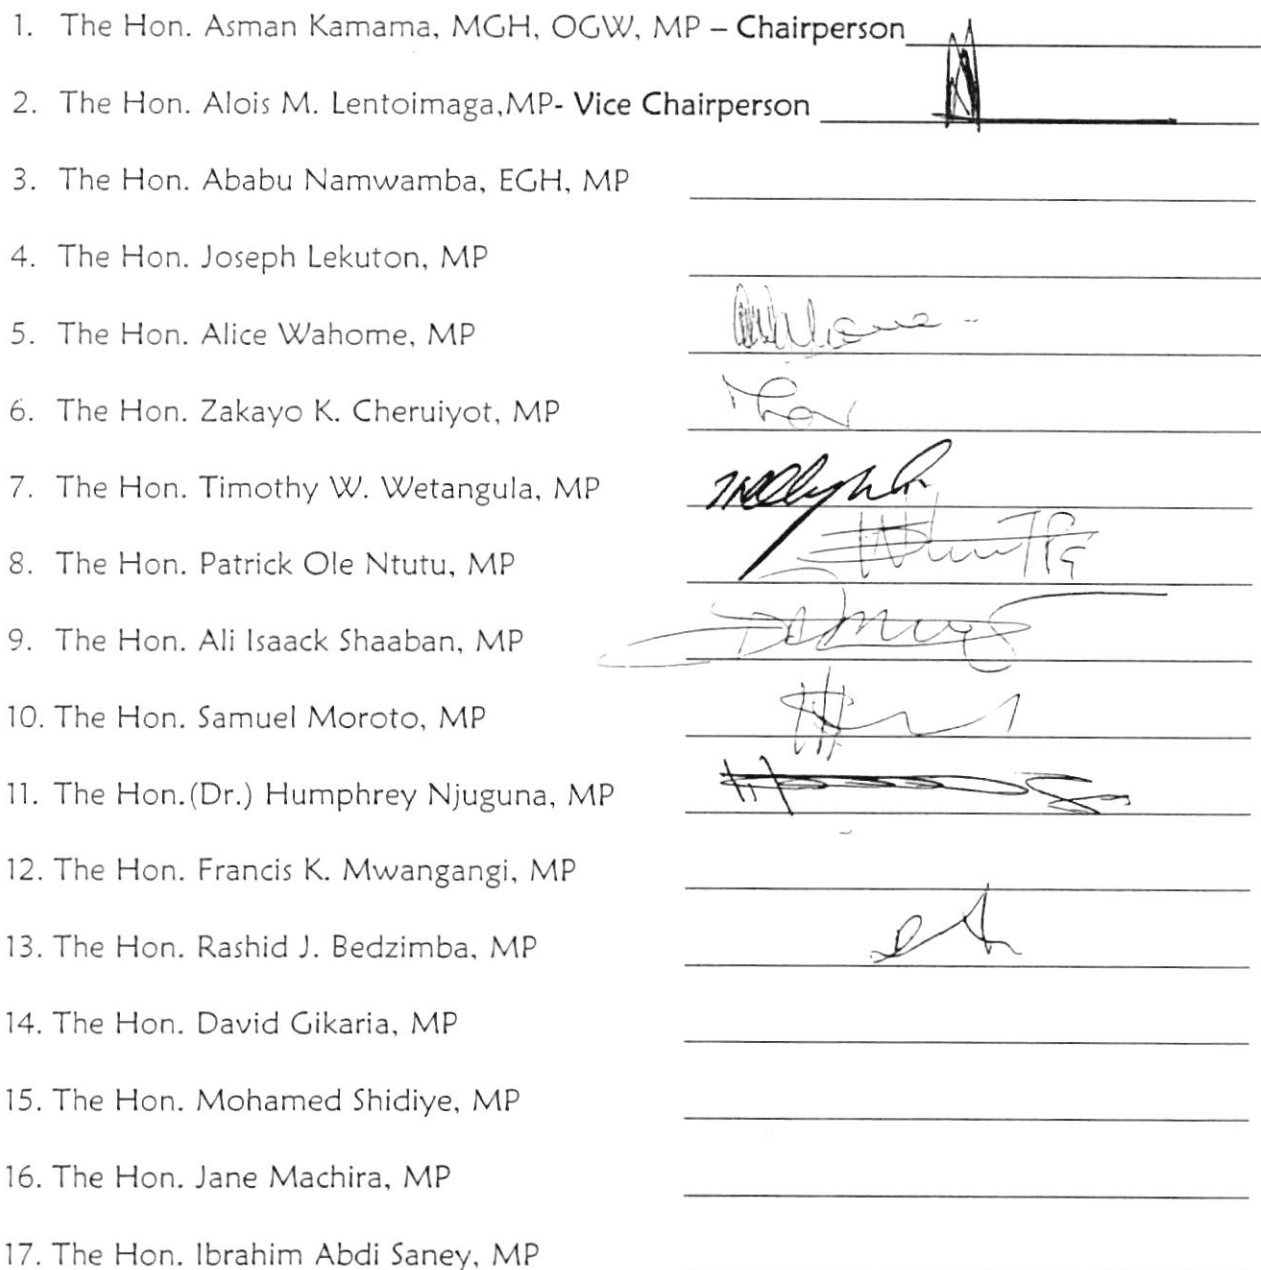 1. The Hon. Asman Kamama, MGH, OGW, MP – Chairperson
2. The Hon. Alois M. Lentoimaga,MP- Vice Chairperson
3. The Hon. Ababu Namwamba, EGH, MP
4. The Hon. Joseph Lekuton, MP
5. The Hon. Alice Wahome, MP
6. The Hon. Zakayo K. Cheruiyot, MP
7. The Hon. Timothy W. Wetangula, MP
8. The Hon. Patrick Ole Ntutu, MP
9. The Hon. Ali Isaack Shaaban, MP
10. The Hon. Samuel Moroto, MP
11. The Hon.(Dr.) Humphrey Njuguna, MP
12. The Hon. Francis K. Mwangangi, MP
13. The Hon. Rashid J. Bedzimba, MP
14. The Hon. David Gikaria, MP
15. The Hon. Mohamed Shidiye, MP
16. The Hon. Jane Machira, MP
17. The Hon. Ibrahim Abdi Saney, MP